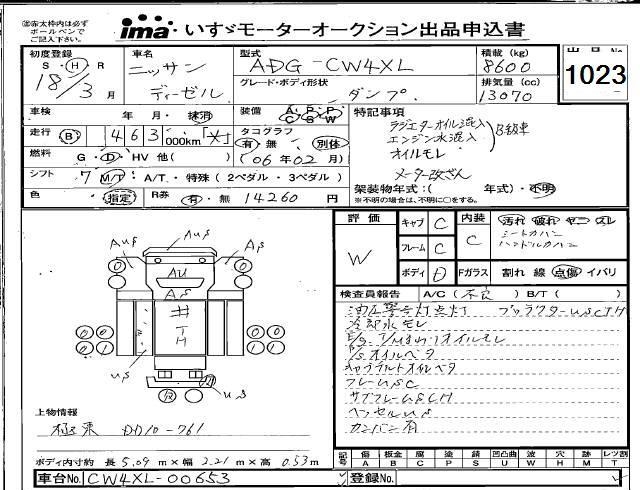 ㊟赤太枠内は必ず
ボールペンで
ご記入下さい。
ima いすゞモーターオークション出品申込書
出品No
1023
初度登録
S・H・R
18/3月
車名
ニッサン
ディーゼル
型式
ADG-CW4XL
グレード・ボディ形状
ダンプ
積載 (kg)
8600
排気量 (cc)
13070
車検 年 月・抹消
装備 A/C P/S P/W
走行 B 463,000km「メ」
タコグラフ
有・無 別体
燃料 G・D・HV 他( )
(06年02月)
シフト 7 M/T・A/T・特殊 (2ペダル・3ペダル)
色 指定
R券 有・無 14260円
特記事項
ラジエターオイル混入
エンジン水混入
オイルモレ
B級車
メーター改ざん
架装物年式:( 年式)・不明
※不明の場合は、不明に○をする。
評価
W
キャブ C
フレーム C
ボディ D
内装
C
汚れ 破れ ヤニ スレ
シートカバー
ハンドルカバー
Fガラス 割れ 線 点傷 イバリ
検査員報告 A/C(不良) B/T( )
油圧警告灯点灯 ブラケターUSCTH
冷却水モレ
E/g T/M オイルモレ
P/Sオイルベタ
キャブチルトオイルベタ
フレームSC
サブフレームSCH
ベッセルUS
カンバン有
AuS
AuS
AS
AU
AS
井
T
H
uS
uS
上物情報
極東 DD10-761
ボディ内寸約 長 5.09m×幅 2.21m×高 0.53m
記号 傷A 板金B 腐C 塗P 錆S 凹凸曲U 波W 穴H 跡M レツ割T
車台No. CW4XL-00653
登録No.